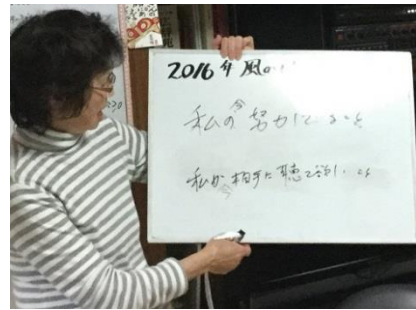 2016年風の
私の今努力してること
私が相手に聴て欲しいこと